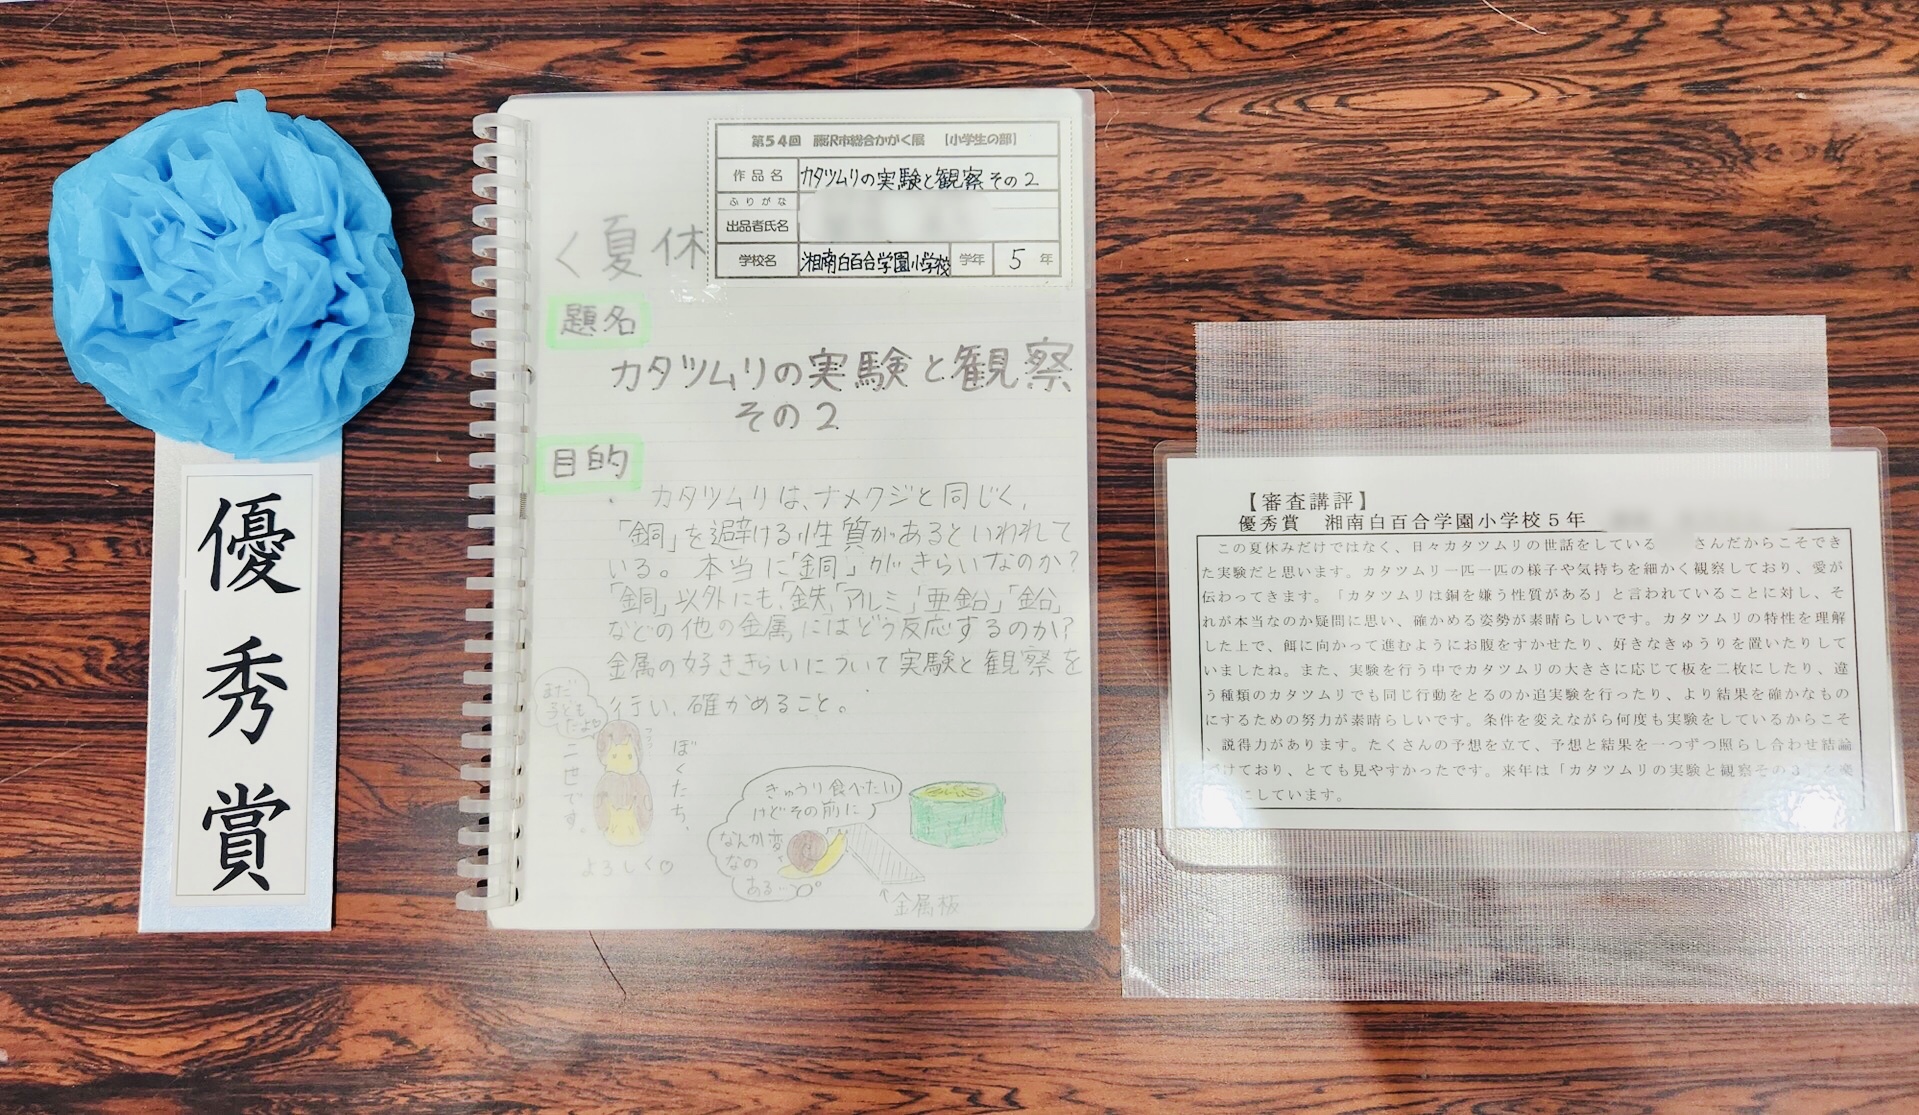 優秀賞
第54回 藤沢市総合かがく展 【小学生の部】
作品名 カタツムリの実験と観察 その2
ふりがな
出品者氏名
学校名 湘南白百合学園小学校 学年 5 年
く夏休
題名
カタツムリの実験と観察
その2
目的
カタツムリは、ナメクジと同じく、
「銅」を避ける性質があるといわれて
いる。本当に「銅」がきらいなのか?
「銅」以外にも、「鉄」「アルミ」「亜鉛」「鉛」
などの他の金属にはどう反応するのか?
金属の好ききらいについて実験と観察を
行い、確かめること。
まだ
子ども
だよ
ぼくたち、
二世です。
よろしく♡
きゅうり食べたい
けどその前に
なんか変
なの
ある…
↑金属板
【審査講評】
優秀賞 湘南白百合学園小学校5年
この夏休みだけではなく、日々カタツムリの世話をしている さんだからこそでき
た実験だと思います。カタツムリ一匹一匹の様子や気持ちを細かく観察しており、愛が
伝わってきます。「カタツムリは銅を嫌う性質がある」と言われていることに対し、そ
れが本当なのか疑問に思い、確かめる姿勢が素晴らしいです。カタツムリの特性を理解
した上で、餌に向かって進むようにお腹をすかせたり、好きなきゅうりを置いたりして
いましたね。また、実験を行う中でカタツムリの大きさに応じて板を二枚にしたり、違
う種類のカタツムリでも同じ行動をとるのか追実験を行ったり、より結果を確かなもの
にするための努力が素晴らしいです。条件を変えながら何度も実験をしているからこそ
、説得力があります。たくさんの予想を立て、予想と結果を一つずつ照らし合わせ結論
けており、とても見やすかったです。来年は「カタツムリの実験と観察その3
にしています。